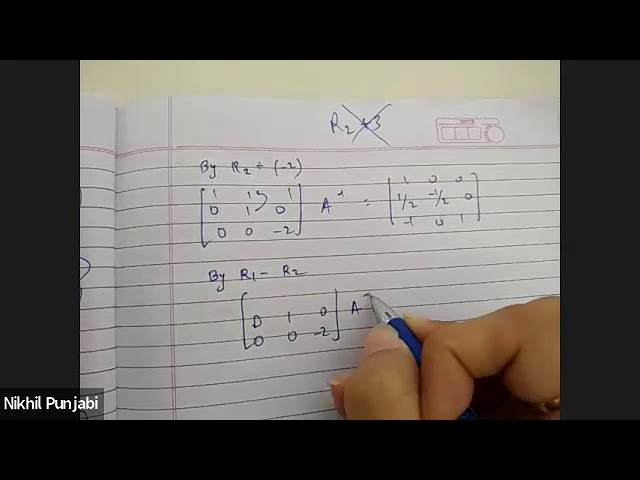 R2 + 3
DATE
By R2 ÷ (-2)
[1 1 1] [1 0 0]
[0 1 0] A⁻¹ = [1/2 -1/2 0]
[0 0 -2] [-1 0 1]
By R1 - R2
[0 1 0] A⁻
[0 0 -2]
Nikhil Punjabi